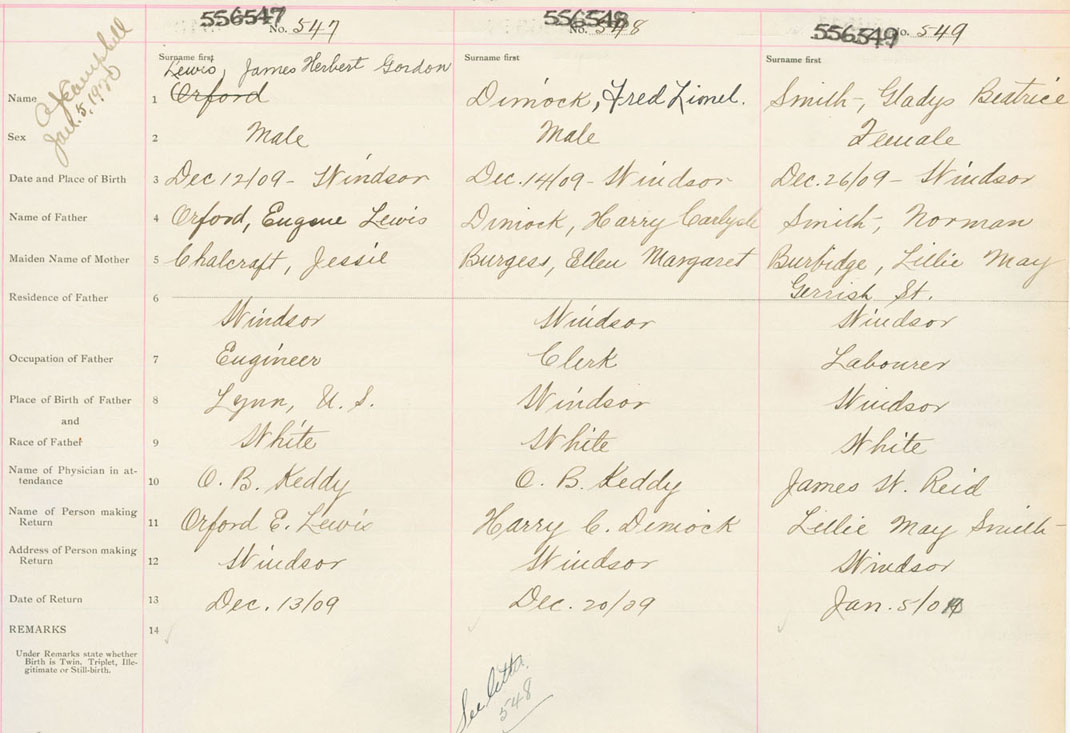 556547 No. 547
556548 No. 548
556549 No. 549
C J Campbell
Jan. 5, 19
Surname first Surname first Surname first
Lewis, James Herbert Gordon
Name 1 Orford Dimock, Fred Lionel. Smith-, Gladys Beatrice
Sex 2 Male Male Female
Date and Place of Birth 3 Dec 12/09- Windsor Dec. 14/09- Windsor Dec. 26/09- Windsor
Name of Father 4 Orford, Eugene Lewis Dimock, Harry Carlyle Smith-, Norman
Maiden Name of Mother 5 Chalcraft, Jessie Burgess, Ellen Margaret Burbidge, Lillie May
Residence of Father 6 Gerrish St.
Windsor Windsor Windsor
Occupation of Father 7 Engineer Clerk Labourer
Place of Birth of Father 8 Lynn, U. S. Windsor Windsor
and
Race of Father 9 White White White
Name of Physician in at-
tendance 10 O. B. Keddy O. B. Keddy James W. Reid
Name of Person making
Return 11 Orford E. Lewis Harry C. Dimock Lillie May Smith-
Address of Person making
Return 12 Windsor Windsor Windsor
Date of Return 13 Dec. 13/09 Dec. 20/09 Jan. 5/0
REMARKS 14
Under Remarks state whether
Birth is Twin. Triplet, Ille-
gitimate or Still-birth.
See
548